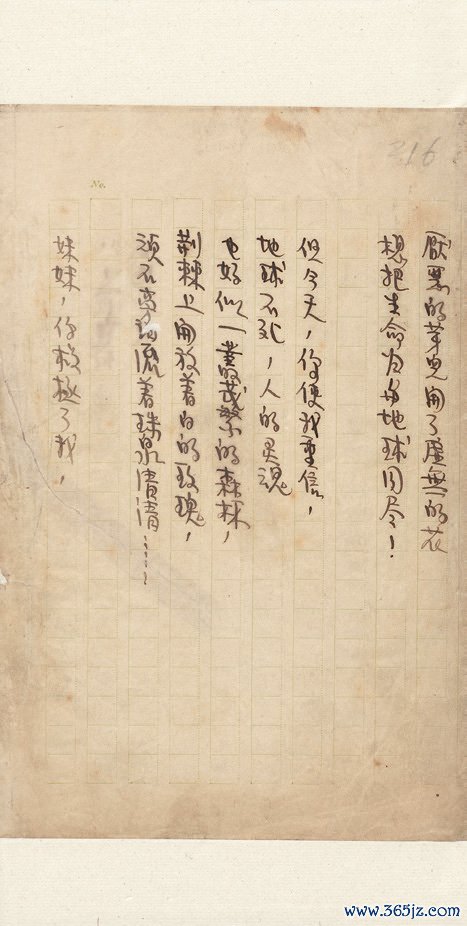 No.
厭惡的芽兒開了虛無的花
想把生命与地球同尽！
但今天，你使我重信，
地球不死，人的灵魂
也好似一叢茂繁的森林，
荆棘上開放着白的玫瑰，
頑石旁流着珠泉清清……
妹妹，你救拯了我，
www.365jz.com